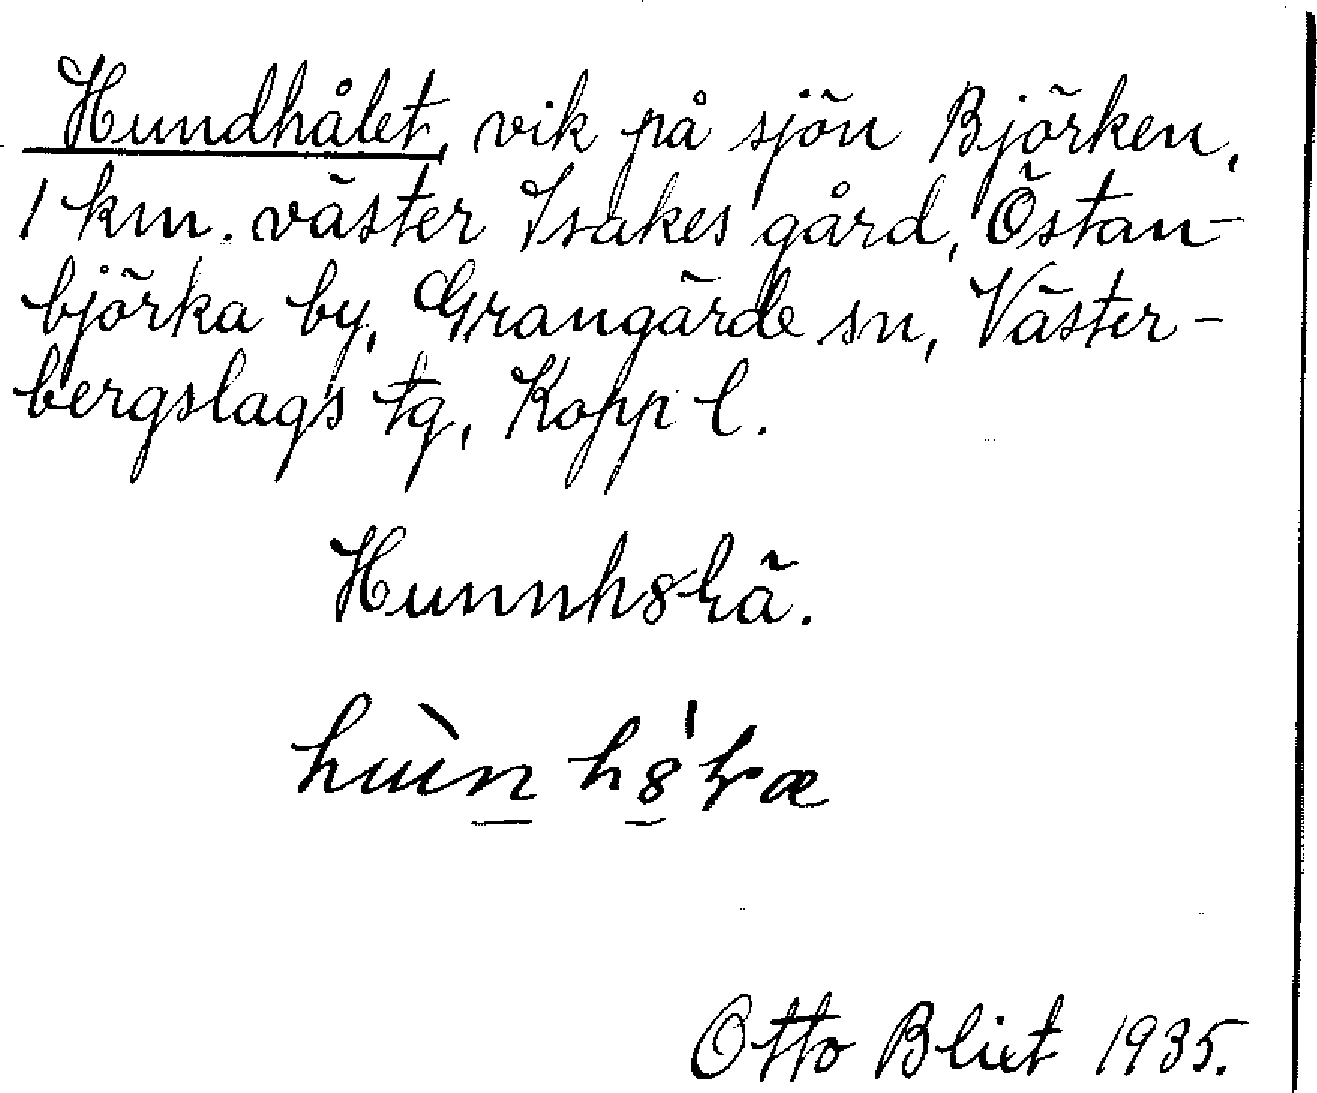 Hundhålet, vik på sjön Björken,
1 km. väster Isakes gård, Östan-
björka by, Grangärde sn, Väster-
bergslags tg, Kopp l.
Otto Blixt 1935.